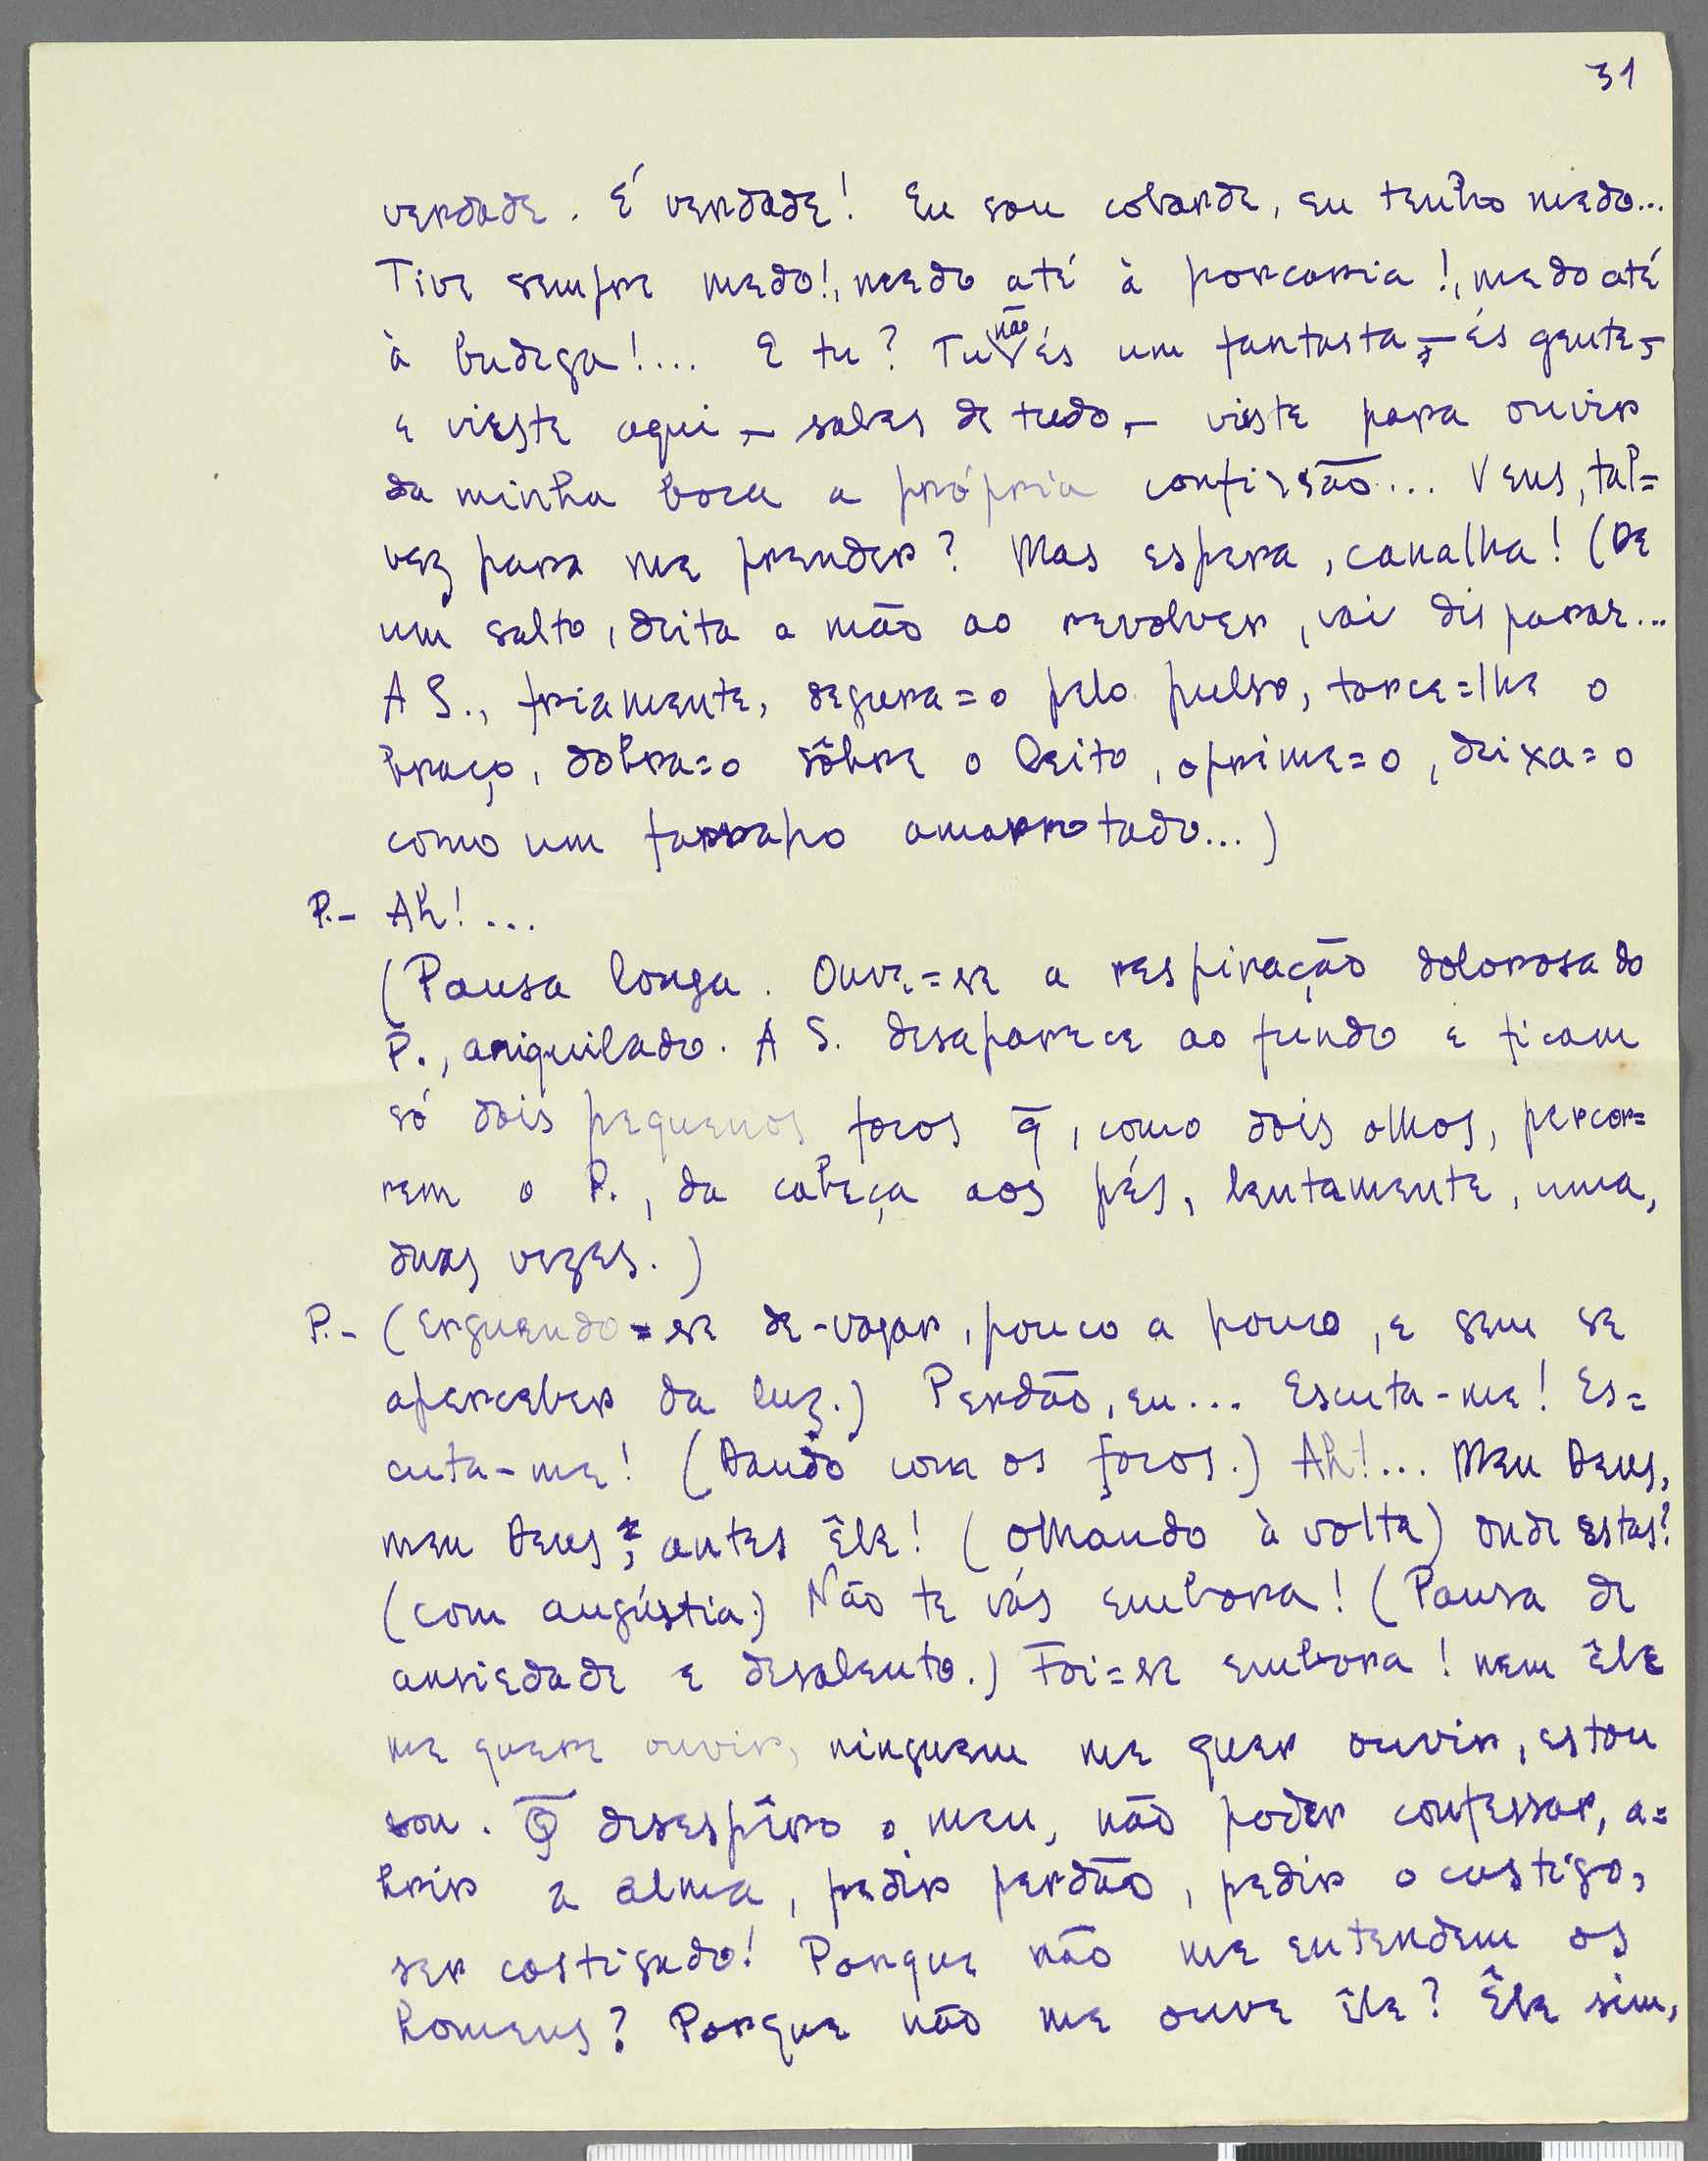 31
verdade. É verdade! Eu sou cobarde, eu tenho medo...
Tive sempre medo!, medo até à porcaria!, medo até
à budega!... E tu? Tu não és um fantasta, — és gente, —
e vieste aqui, — sabes de tudo, — vieste para ouvir
da minha boca a própria confissão... Vens, tal=
vez para me prender? Mas espera, canalha! (De
um salto, deita a mão ao revolver, vai disparar...
A S., friamente, segura=o pelo pulso, torce=lhe o
braço, dobra=o sôbre o leito, oprime=o, deixa=o
como um farrapo amarrotado...)
P. - Ah!...
(Pausa longa. Ouve=se a respiração dolorosa do
P., aniquilado. A S. desaparece ao fundo e ficam
só dois pequenos focos q̄, como dois olhos, percor=
rem o P., da cabeça aos pés, lentamente, uma,
duas vezes.)
P. - (Erguendo=se de-vagar, pouco a pouco, e sem se
aperceber da luz.) Perdão, eu... Escuta-me! Es=
cuta-me! (Dando com os focos.) Ah!... Meu Deus,
meu Deus; antes êle! (Olhando à volta) Onde estas?
(com angústia.) Não te vás embora! (Pausa de
ansiedade e desalento.) Foi=se embora! nem êle
me quere ouvir, ninguem me quer ouvir, estou
sou. Q̄ desespêro o meu, não poder confessar, a=
brir a alma, pedir perdão, pedir o castigo,
ser castigado! Porque não me entendem os
homens? Porque não me ouve êle? Êle sim,